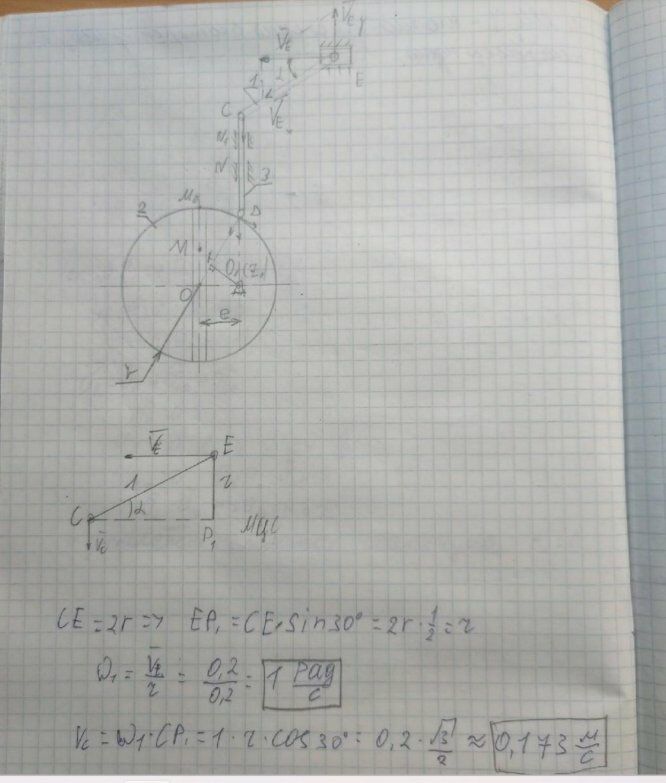 V̅E y
V̅E
1
α
E
C
V̅E
N₁
N
3
M₀
D
2
M
O
O₁(z₁)
e
r
V̅E
E
1
r
C
α
P₁
МЦС
V̅c
CE = 2r => EP₁ = CE·sin30° = 2r·1/2 = r
ω₁ = V̅E/r = 0,2/0,2 = 1 рад/с
Vc = ω₁·CP₁ = 1·r·cos30° = 0,2·√3/2 ≈ 0,173 м/с